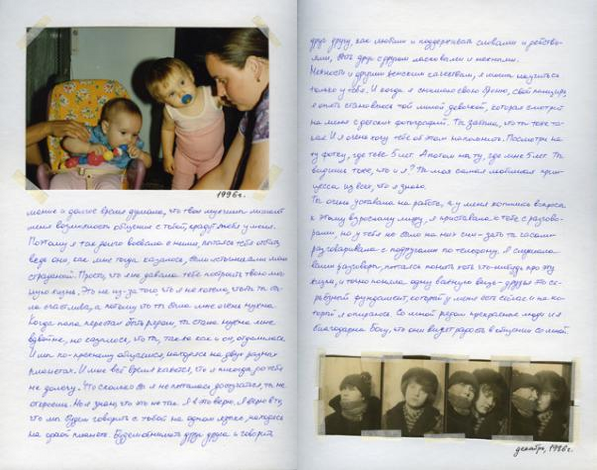 1996г.
мание и долгое время думала, что твои мужчины мешают
мне возможность общения с тобой, крадут тебя у меня.
Поэтому я так долго воевала с ними, пытаясь тебя отбить,
ведь они, как мне тогда казалось, были источниками моих
страданий. Прости, что я не давала тебе построить твою лич-
ную жизнь. Это не из-за того что я не хотела, чтобы ты ста-
ла счастлива, а потому что ты была мне очень нужна.
Когда папа перестал быть рядом, ты стала нужна мне
вдвойне, но казалось, что ты, так же как и он, отдалилась.
И мы по-прежнему общаемся, находясь на двух разных
планетах. И мне всё время кажется, что я никогда до тебя
не долечу. Что сколько бы я не пыталась достучаться, ты не
откроешь. Но я знаю, что это не так. Я в это верю. Я верю в то,
что мы будем говорить с тобой на одном языке, находясь
на одной планете. Будем обнимать друг друга и говорить
друг другу, как любим и поддерживаем словами и действи-
ями, быть друг с другом ласковыми и нежными.
Нежности и другим женским качествам, я могла научиться
только у тебя. И когда я слышала свою
я опять становлюсь той милой девочкой, которая смотрит
на меня с детских фотографий. Ты забыла, что ты тоже та-
кая. И я очень хочу тебе об этом напомнить. Посмотри на
ту фотку, где тебе 5 лет. А потом на ту, где мне 5 лет. Ты
видишь тоже, что и я? Ты моя самая любимая прин-
цесса из всех, что я знаю.
Ты очень уставала на работе, а у меня копились вопросы
к этому взрослому миру, я приставала к тебе с разгово-
рами, но у тебя не было на них сил- зато ты часами
разговаривала с подругами по телефону. Я слушала
ваши разговоры, пытаясь понять хоть что-нибудь про эту
жизнь, и точно поняла одну важную вещь- друзья это се-
рьёзный фундамент, который у меня есть сейчас и на ко-
торый я опираюсь. Со мной рядом прекрасные люди и я
благодарна Богу, что они видят радость в общении со мной.
декабрь, 1986г.